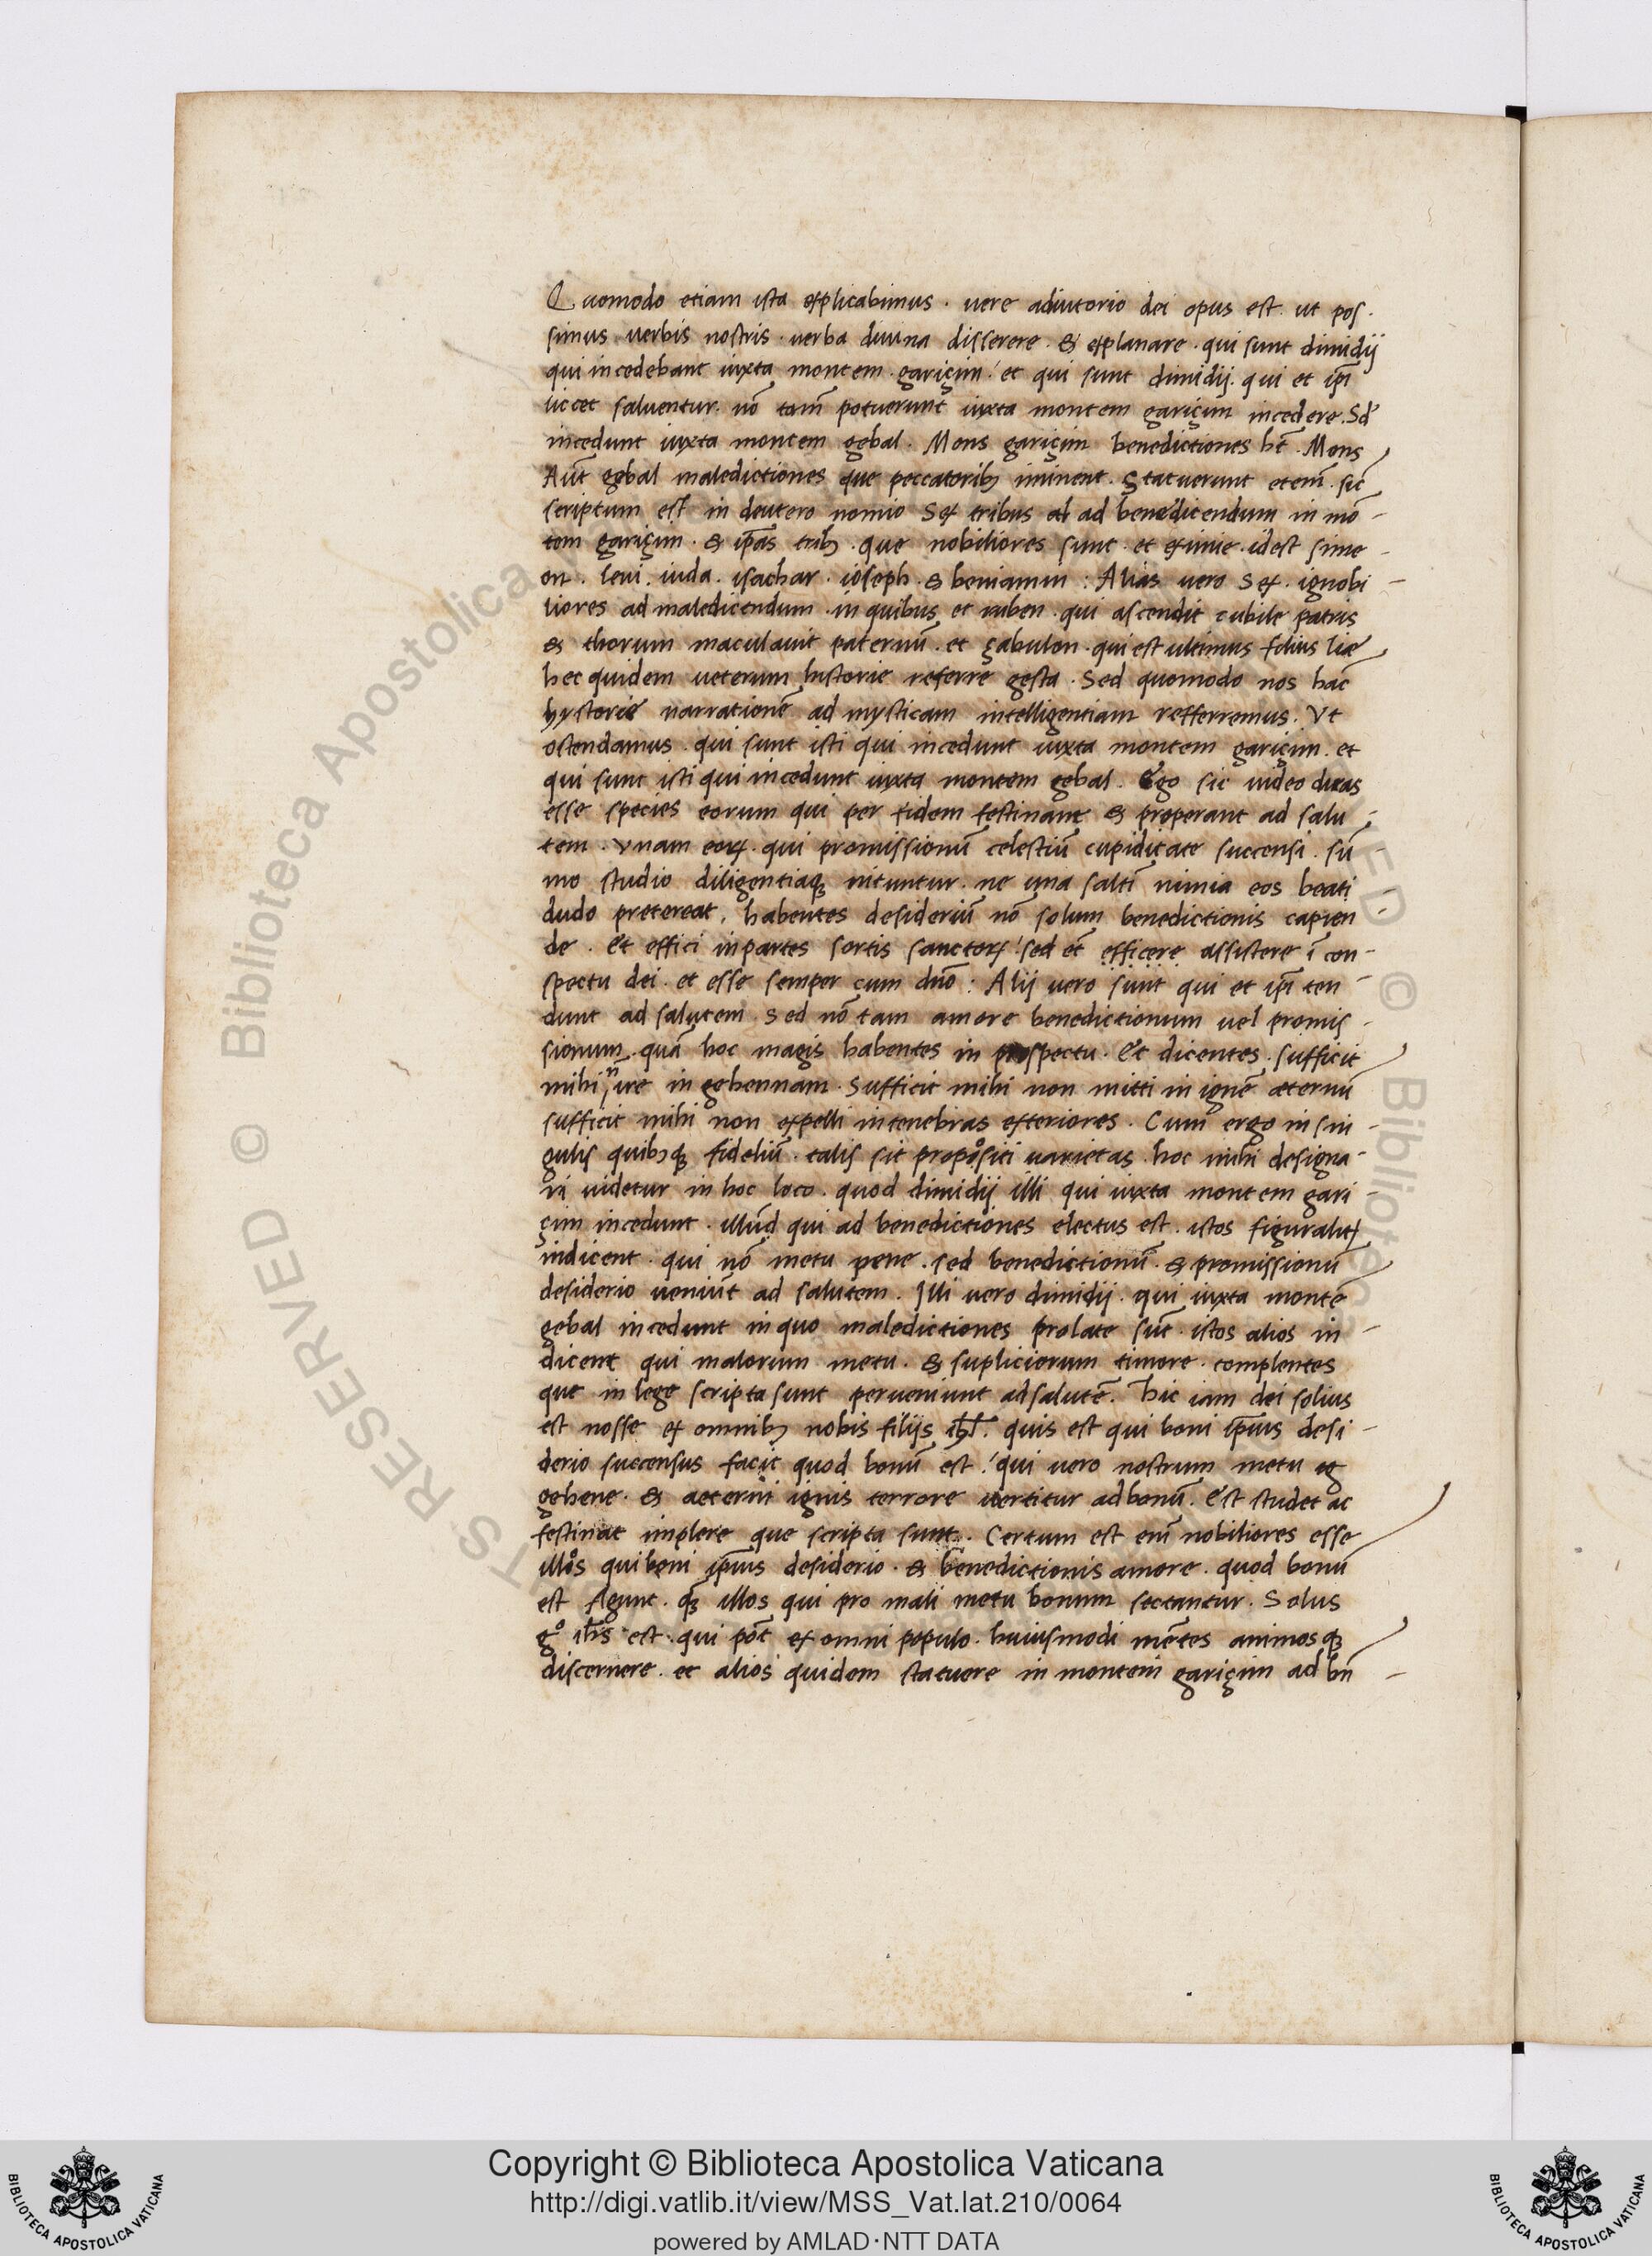 Quomodo etiam ista explicabimus . vere adiutorio dei opus est . ut pos .
simus verbis nostris . verba divina disserere . & explanare . qui sunt dimidij
qui incedebant iuxta montem . gariçim . et qui sunt dimidij . qui et ip̃i
liceet saluentur . nõ tam̃ potuerunt iuxta montem gariçim incedere . Sd̕
incedunt iuxta montem gebal . Mons gariçim benedictiones ht̃ . Mons
Aut̃ gebal maledictiones que peccatorib; iminent . Statuerunt eteni̅ . sic̃
scriptum est in deutero nomio Sex tribus ad benedicendum in mõ -
tem gariçim . & ip̃as trib; . que nobiliores sunt . et eximie . idest sime -
on . leui . iuda . isachar . ioseph . & beniamin : Alias vero sex . ignobi -
liores ad maledicendum . in quibus et ruben . qui ascendit cubile patris
& thorum maculauit paternũ . et çabulon . qui est ultimus filius liæ
hec quidem ueterum historie referre gesta . Sed quomodo nos hac̃
hystorie narrationẽ ad mysticam intelligentiam refferremus . Vt
ostendamus . qui sunt isti qui incedunt iuxta montem gariçim . et
qui sunt isti qui incedunt iuxta montem gebal . Ego sic uideo duas
esse species eorum qui per fidem festinant & properant ad salu -
tem . vnam eoꝝ . qui promissionũ celestiũ cupiditate succensi . sũ -
mo studio diligentiaqꝫ nituntur . ne una saltĩ nimia eos beati
dudo pretereat . habentes desideriũ nõ solum benedictionis capien -
de . Et effici inpartes sortis sanctoꝝ ! sed et̃ efficere assistere ĩ con -
spectu dei . et esse semper cum dño : Alij vero sunt qui et ip̃i ten -
dunt ad salutem . Sed nõ tam amore benedictionum uel promis -
sionum . quã hoc magis habentes in prospectu . Et dicentes . sufficit
mihi n̅ ire in gehennam . Sufficit mihi non mitti in ignẽ æternũ
sufficit mihi non expelli in tenebras exteriores . Cum ergo in sin -
gulis quibꝫqꝫ fideliũ . talis sit propositi uarietas . hoc mihi designa -
ri uidetur in hoc loco . quod dimidij illi qui iuxta montem gari -
çim incedunt . illud̃ qui ad benedictiones electus est . istos figuralit̕
indicent . qui nõ metu pene . sed benedictionũ . & promissionũ
desiderio ueniũt ad salutem . Illi vero dimidij . qui iuxta montẽ
gebal incedunt in quo maledictiones prolate sũt . istos alios in -
dicent qui malorum metu . & supliciorum timore . complentes
que in lege scripta sunt perueniunt ad salutẽ . Hic iam dei solius
est nosse ex omnib; nobis filijs iẖl̅ . quis est qui boni ip̃ius desi -
derio succensus facit quod bonũ est ! qui vero nostrum metu ig
gehene . & aeterni ignis terrore vertitur ad bonũ . Est studet ac
festinat implere que scripta sunt . Certum est eni̅ nobiliores esse
illos qui boni ip̃ius desiderio . & benedictionis amore . quod bonũ
est Agunt . qꝫ̃ illos qui pro mali metu bonum sectantur . Solus
g° ihs̅ est . qui põt ex omni populo . huiusmodi mẽtes animosqꝫ
discernere . et alios quidem statuere in montem gariçim ad bñ -
Copyright © Biblioteca Apostolica Vaticana
http://digi.vatlib.it/view/MSS_Vat.lat.210/0064
powered by AMLAD·NTT DATA